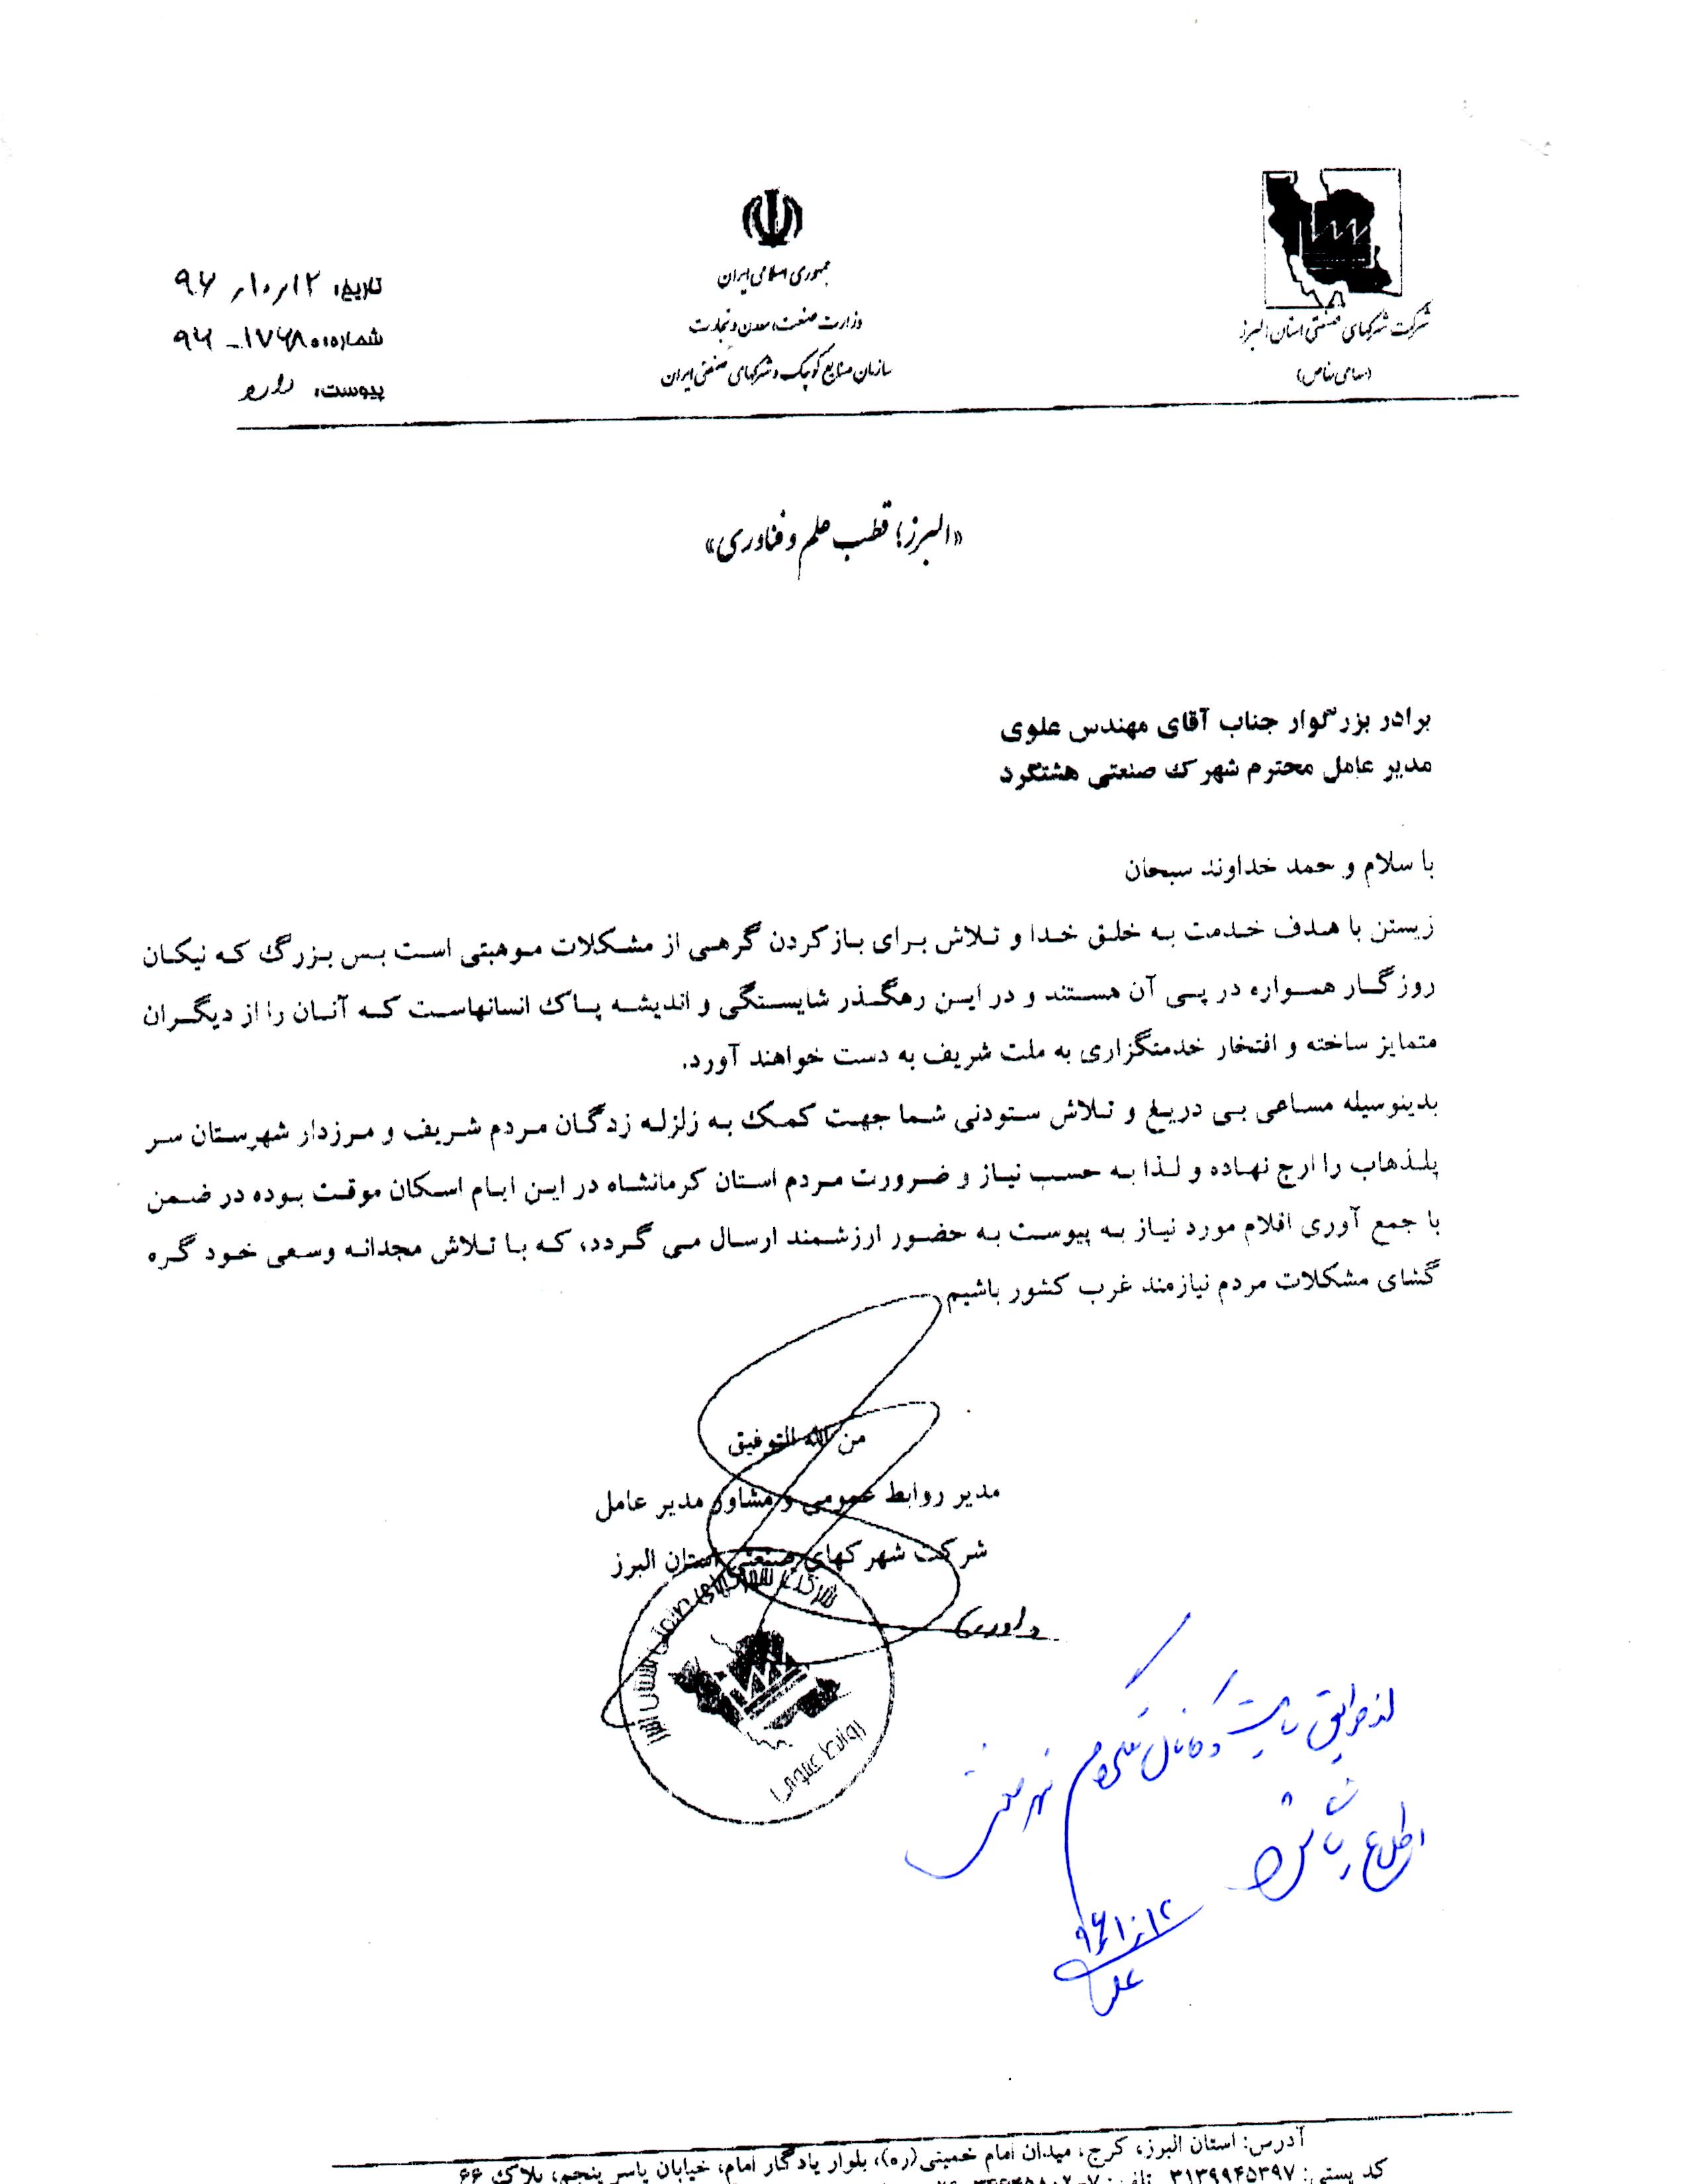 شرکت شهرکهای صنعتی استان البرز
(سهامی خاص)
جمهوری اسلامی ایران
وزارت صنعت، معدن و تجارت
سازمان صنایع کوچک و شهرکهای صنعتی ایران
تاریخ:
شماره:
پیوست: دارد
«البرز؛ قطب علم و فناوری»
برادر بزرگوار جناب آقای مهندس علوی
مدیر عامل محترم شهرک صنعتی هشتگرد
با سلام و حمد خداوند سبحان
زیستن با هدف خدمت به خلق خدا و تلاش برای باز کردن گرهی از مشکلات موهبتی است بس بزرگ که نیکان
روزگار همواره در پی آن هستند و در این رهگذر شایستگی و اندیشه پاک انسانهاست که آنان را از دیگران
متمایز ساخته و افتخار خدمتگزاری به ملت شریف به دست خواهند آورد.
بدینوسیله مساعی بی دریغ و تلاش ستودنی شما جهت کمک به زلزله زدگان مردم شریف و مرزدار شهرستان سر
پلذهاب را ارج نهاده و لذا به حسب نیاز و ضرورت مردم استان کرمانشاه در این ایام اسکان موقت بوده در ضمن
با جمع آوری اقلام مورد نیاز به پیوست به حضور ارزشمند ارسال می گردد، که با تلاش مجدانه وسعی خود گره
گشای مشکلات مردم نیازمند غرب کشور باشیم
من الله التوفیق
مدیر روابط عمومی و مشاور مدیر عامل
شرکت شهرکهای صنعتی استان البرز
داوری
شرکت شهرکهای صنعتی استان البرز
روابط عمومی
از طریق سایت و کانال تلگرام شهرک صنعتی
اطلاع رسانی شود
آدرس: استان البرز، کرج، میدان امام خمینی (ره)، بلوار یادگار امام، خیابان یاسر پنجم، پلاک ۶۶
کد پستی: ۳۱۳۹۹۴۵۳۹۷ تلفن: